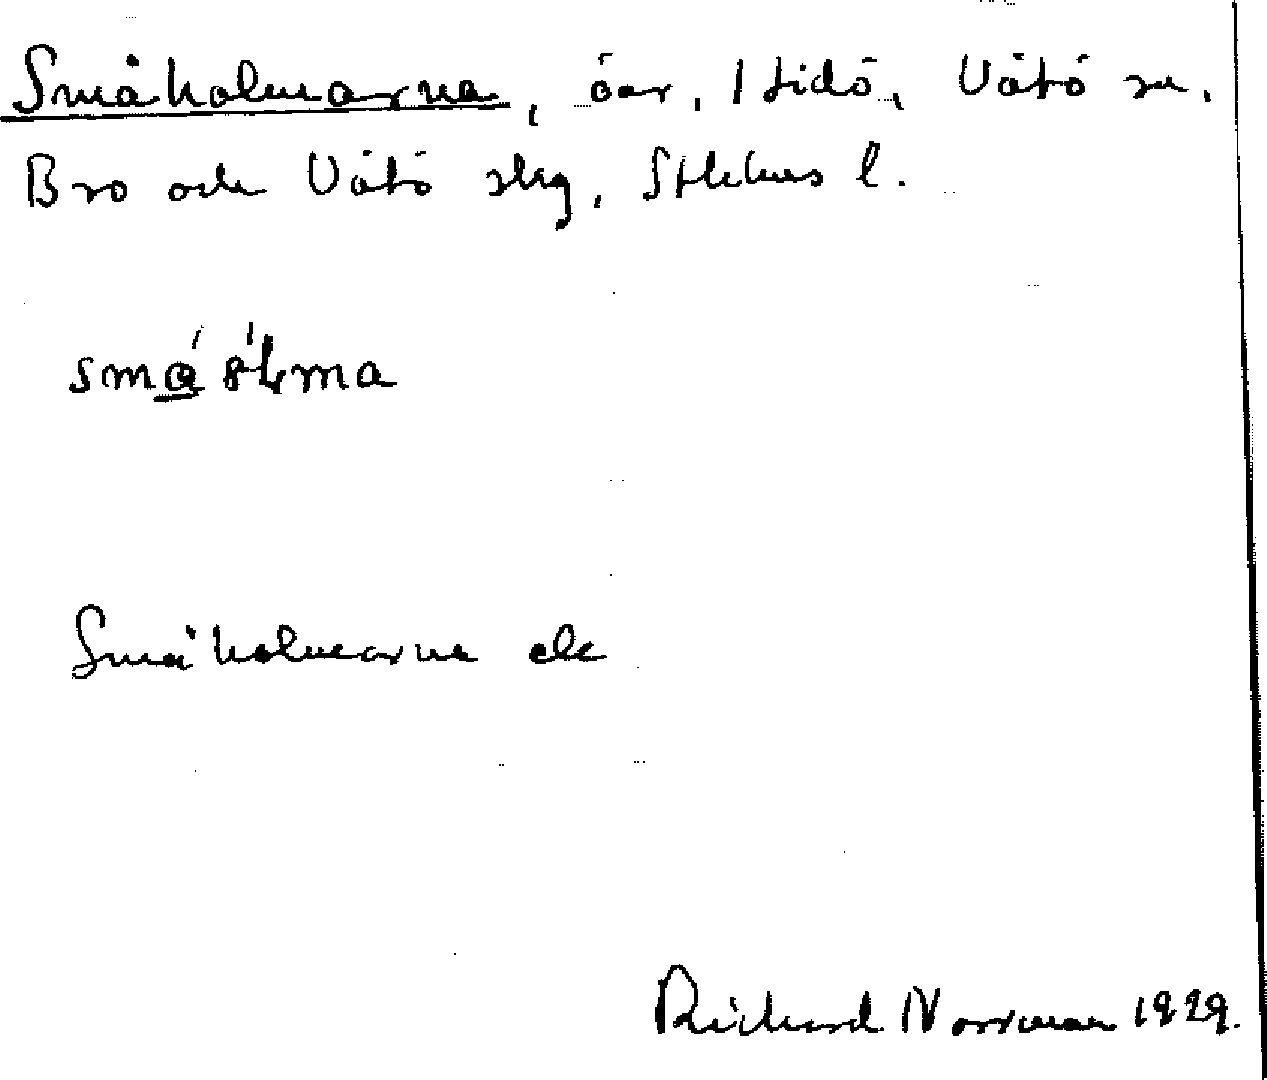 Småholmarna, öar, Itidö, Vätö sn.
Bro och Vätö skg, Sthlms l.
Småholmarna ek
Richard Norrman 1929.